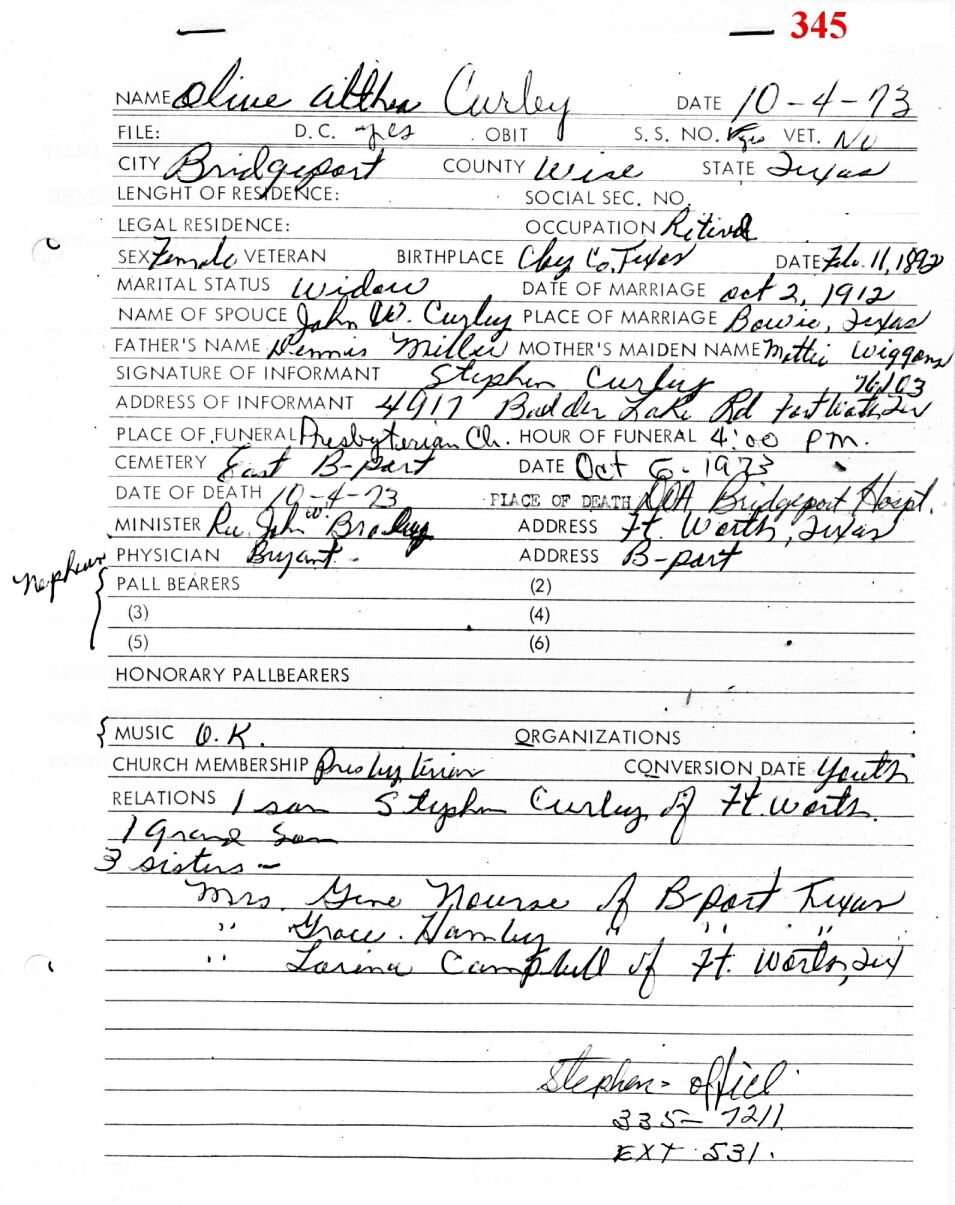 345
NAME Olive Althea Curley DATE 10-4-73
FILE: D.C. yes OBIT S.S. NO. yes VET. No
CITY Bridgeport COUNTY Wise STATE Texas
LENGHT OF RESIDENCE: SOCIAL SEC. NO.
LEGAL RESIDENCE: OCCUPATION Retired
SEX Female VETERAN BIRTHPLACE Clay Co, Texas DATE Feb. 11, 1892
MARITAL STATUS Widow DATE OF MARRIAGE Oct 2, 1912
NAME OF SPOUCE John W. Curley PLACE OF MARRIAGE Bowie, Texas
FATHER'S NAME Dennis Miller MOTHER'S MAIDEN NAME Mattie Wiggons
SIGNATURE OF INFORMANT Stephen Curley 76103
ADDRESS OF INFORMANT 4917 Lake Rd Fort Worth, Tex
PLACE OF FUNERAL Presbyterian Ch. HOUR OF FUNERAL 4:00 PM.
CEMETERY East B-port DATE Oct 6-1973
DATE OF DEATH 10-4-73 PLACE OF DEATH DOA Bridgeport Hospt.
MINISTER Rev. John W. ADDRESS Ft. Worth, Texas
PHYSICIAN Bryant - ADDRESS B-port
Nephews { PALL BEARERS (2)
(3) (4)
(5) (6)
HONORARY PALLBEARERS
{ MUSIC O.K. ORGANIZATIONS
CHURCH MEMBERSHIP Presbyterian CONVERSION DATE Youth
RELATIONS 1 son Stephen Curley of Ft. Worth.
1 Grand Son
3 sisters -
Mrs. Gene Nourse of B-port Texas
" Grace Hamley " " "
" Lorena Campbell of Ft. Worth, Tex
Stephen - office
335-7211
EXT 531.